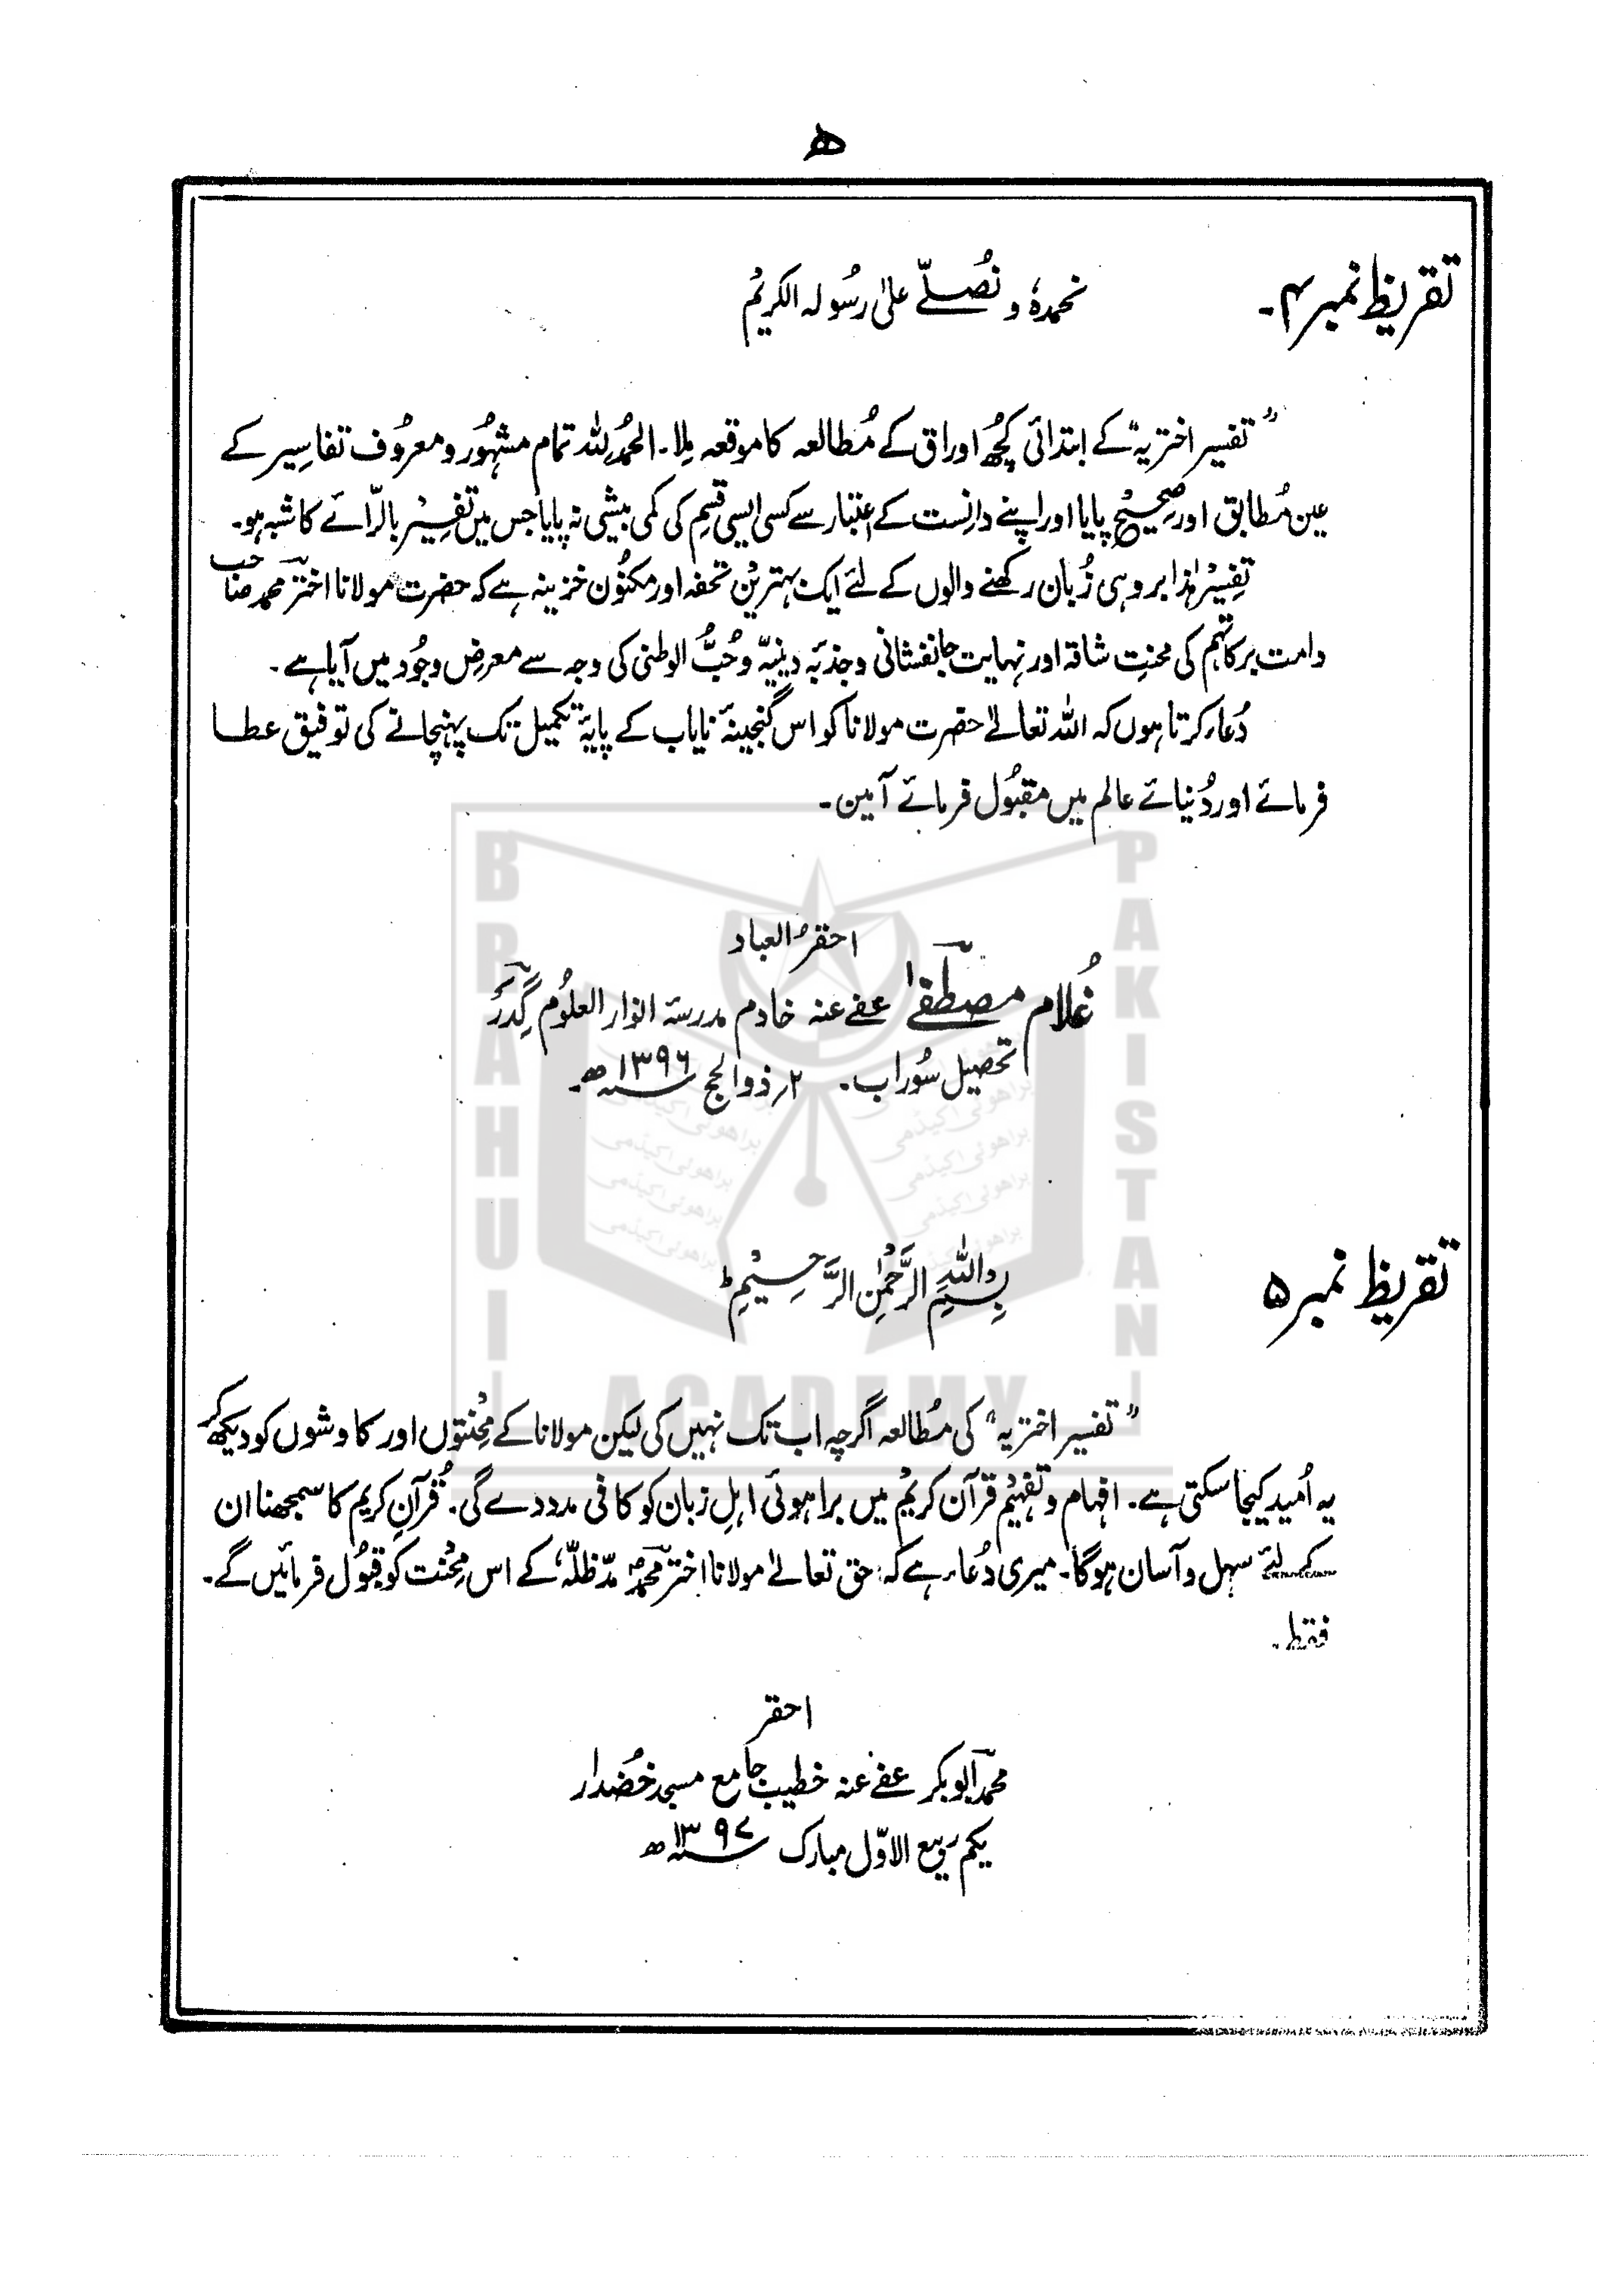 ھ
تقریظ نمبر ۴۔ نحمدہٗ و نُصلّے علیٰ رسُولہ الکریمْ
”تفسیر اختریہ“ کے ابتدائی کچھُ اوراق کے مُطالعہ کا موقعہ مِلا۔ الحمدُ للہ تمام مشہُور و معرُوف تفاسِیر کے
عین مُطابق اور صحِیحْ پایا اور اپنے دانِست کے اعتبار سے کسی ایسی قِسم کی کمی بیشی نہ پایا جس میں تفسِیرْ بالرّائے کا شبہ ہو۔
تفسِیرْ ہٰذا بروہی زُبان رکھنے والوں کے لئے ایک بہتریْن تحفہ اور مکنُون خزینہ ہے کہ حضرت مولانا اختر محمد صاحب
دامت برکاتہم کی محنتِ شاقہ اور نہایت جانفشانی و جذبۂ دینیہّ و حُبُّ الوطنی کی وجہ سے معرضِ وجُود میں آیا ہے۔
دُعاء کرتا ہوں کہ اللہ تعالےٰ حضرت مولانا کو اس گنجینۂ نایاب کے پایۂ تکمیل تک پہنچانے کی توفیق عطا
فرمائے اور دُنیائے عالم میں مقبُول فرمائے آمین۔
احقرُ العباد
غُلام مصطفےٰ عفے عنہ خادم مدرسہ انوار العلُوم گِدرْ
تحصیل سُوراب۔ ۲؍ ذوالحج ۱۳۹۶ھ۔
تقریظ نمبر ۵ بِسْمِ اللّٰہِ الرَّحْمٰنِ الرَّحِیْمِ ط
”تفسیر اختریہ“ کی مُطالعہ اگرچہ اب تک نہیں کی لیکن مولانا کے مِحْنتوں اور کاوشوں کو دیکھ کر
یہ اُمید کیجا سکتی ہے۔ افہام و تفہیْم قرآن کریْم میں براہوئی اہلِ زبان کو کافی مدد دے گی۔ قُرآنِ کریم کا سمجھنا ان
کے لئے سہل و آسان ہوگا۔ میری دُعاء ہے کہ حق تعالےٰ مولانا اختر محمدؐ مدّظلّہٗ کے اس مِحْنت کو قبُول فرمائیں گے۔
فقط۔
احقر
محمد ابوبکر عفے عنہ خطیب جامع مسجد خُضدار
یکم ربیع الاوّل مبارک ۱۳۹۷ھ
BRAHUI
PAKISTAN
ACADEMY
براھوئی اکیڈمی